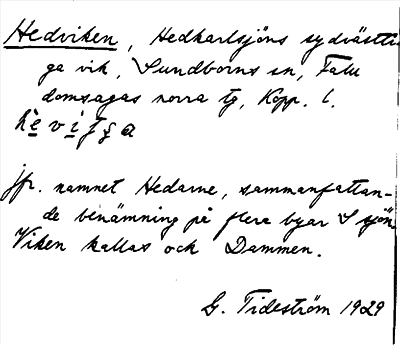 Hedviken, Hedkarlsjöns sydvästli
ga vik, Sundborns sn, Falu
domsagas norra tg, Kopp. l.
jfr. namnet Hedarne, sammanfattan-
de benämning på flera byar S sjön
Viken kallas och Dammen.
G. Tideström 1929